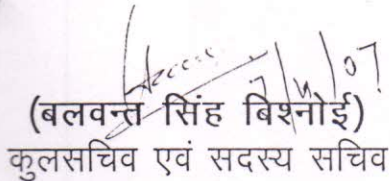 (बलवन्त सिंह बिश्नोई)
कुलसचिव एवं सदस्य सचिव